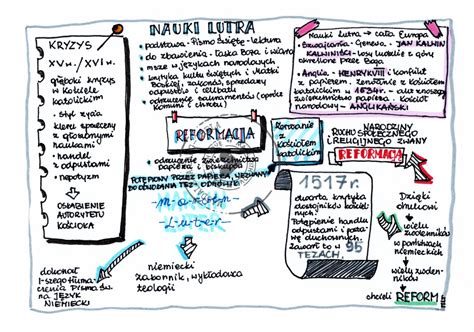 KRYZYS
XV w. / XVI w.
głęboki kryzys
w Kościele
katolickim
• styl życia
kleru sprzeczny
z głoszonymi
naukami
• handel
z odpustami
• nepotyzm
OSŁABIENIE
AUTORYTETU
KOŚCIOŁA
NAUKI LUTRA
• podstawa - Pismo Święte - lektura
• do zbawienia - Łaska Boża i wiara
• msze w językach narodowych
• krytyka kultu świętych i Matki
Boskiej, zakonów, sprzedaży
odpustów i celibatu
• odrzucenie sakramentów (oprócz
komunii i chrztu)
REFORMACJA
• odrzucenie zwierzchnictwa
papieża i biskupów
POTĘPIONY PRZEZ PAPIEŻA, WEZWANY
DO ODWOŁANIA TEZ - ODMÓWIŁ
Marcin
Luter
niemiecki
zakonnik, wykładowca
teologii
dokonał
1-szego tłuma-
czenia Pisma Św.
na JĘZYK
NIEMIECKI
Nauki Lutra → cała Europa
• Szwajcaria - Genewa - JAN KALWIN
KALWINIŚCI - losy ludzkie z góry
określone przez Boga
• Anglia - HENRYK VIII i konflikt
z papieżem, zerwanie z Kościołem
katolickim w 1534r. - akt znoszący
zwierzchnictwo papieża. Kościół
narodowy - ANGLIKAŃSKI
Zerwanie
z
Kościołem
katolickim
NARODZINY
RUCHU SPOŁECZNEGO
I RELIGIJNEGO ZWANY
REFORMACJĄ
1517r.
otwarta krytyka
dostojników kościel-
nych.
Potępienie handlu
odpustami i posta-
wę duchownych.
Zawarł to w 95
TEZACH.
Dzięki
drukowi
wielu zwolenników
w państwach
niemieckich
wielu zwolen-
ników
chcieli REFORM